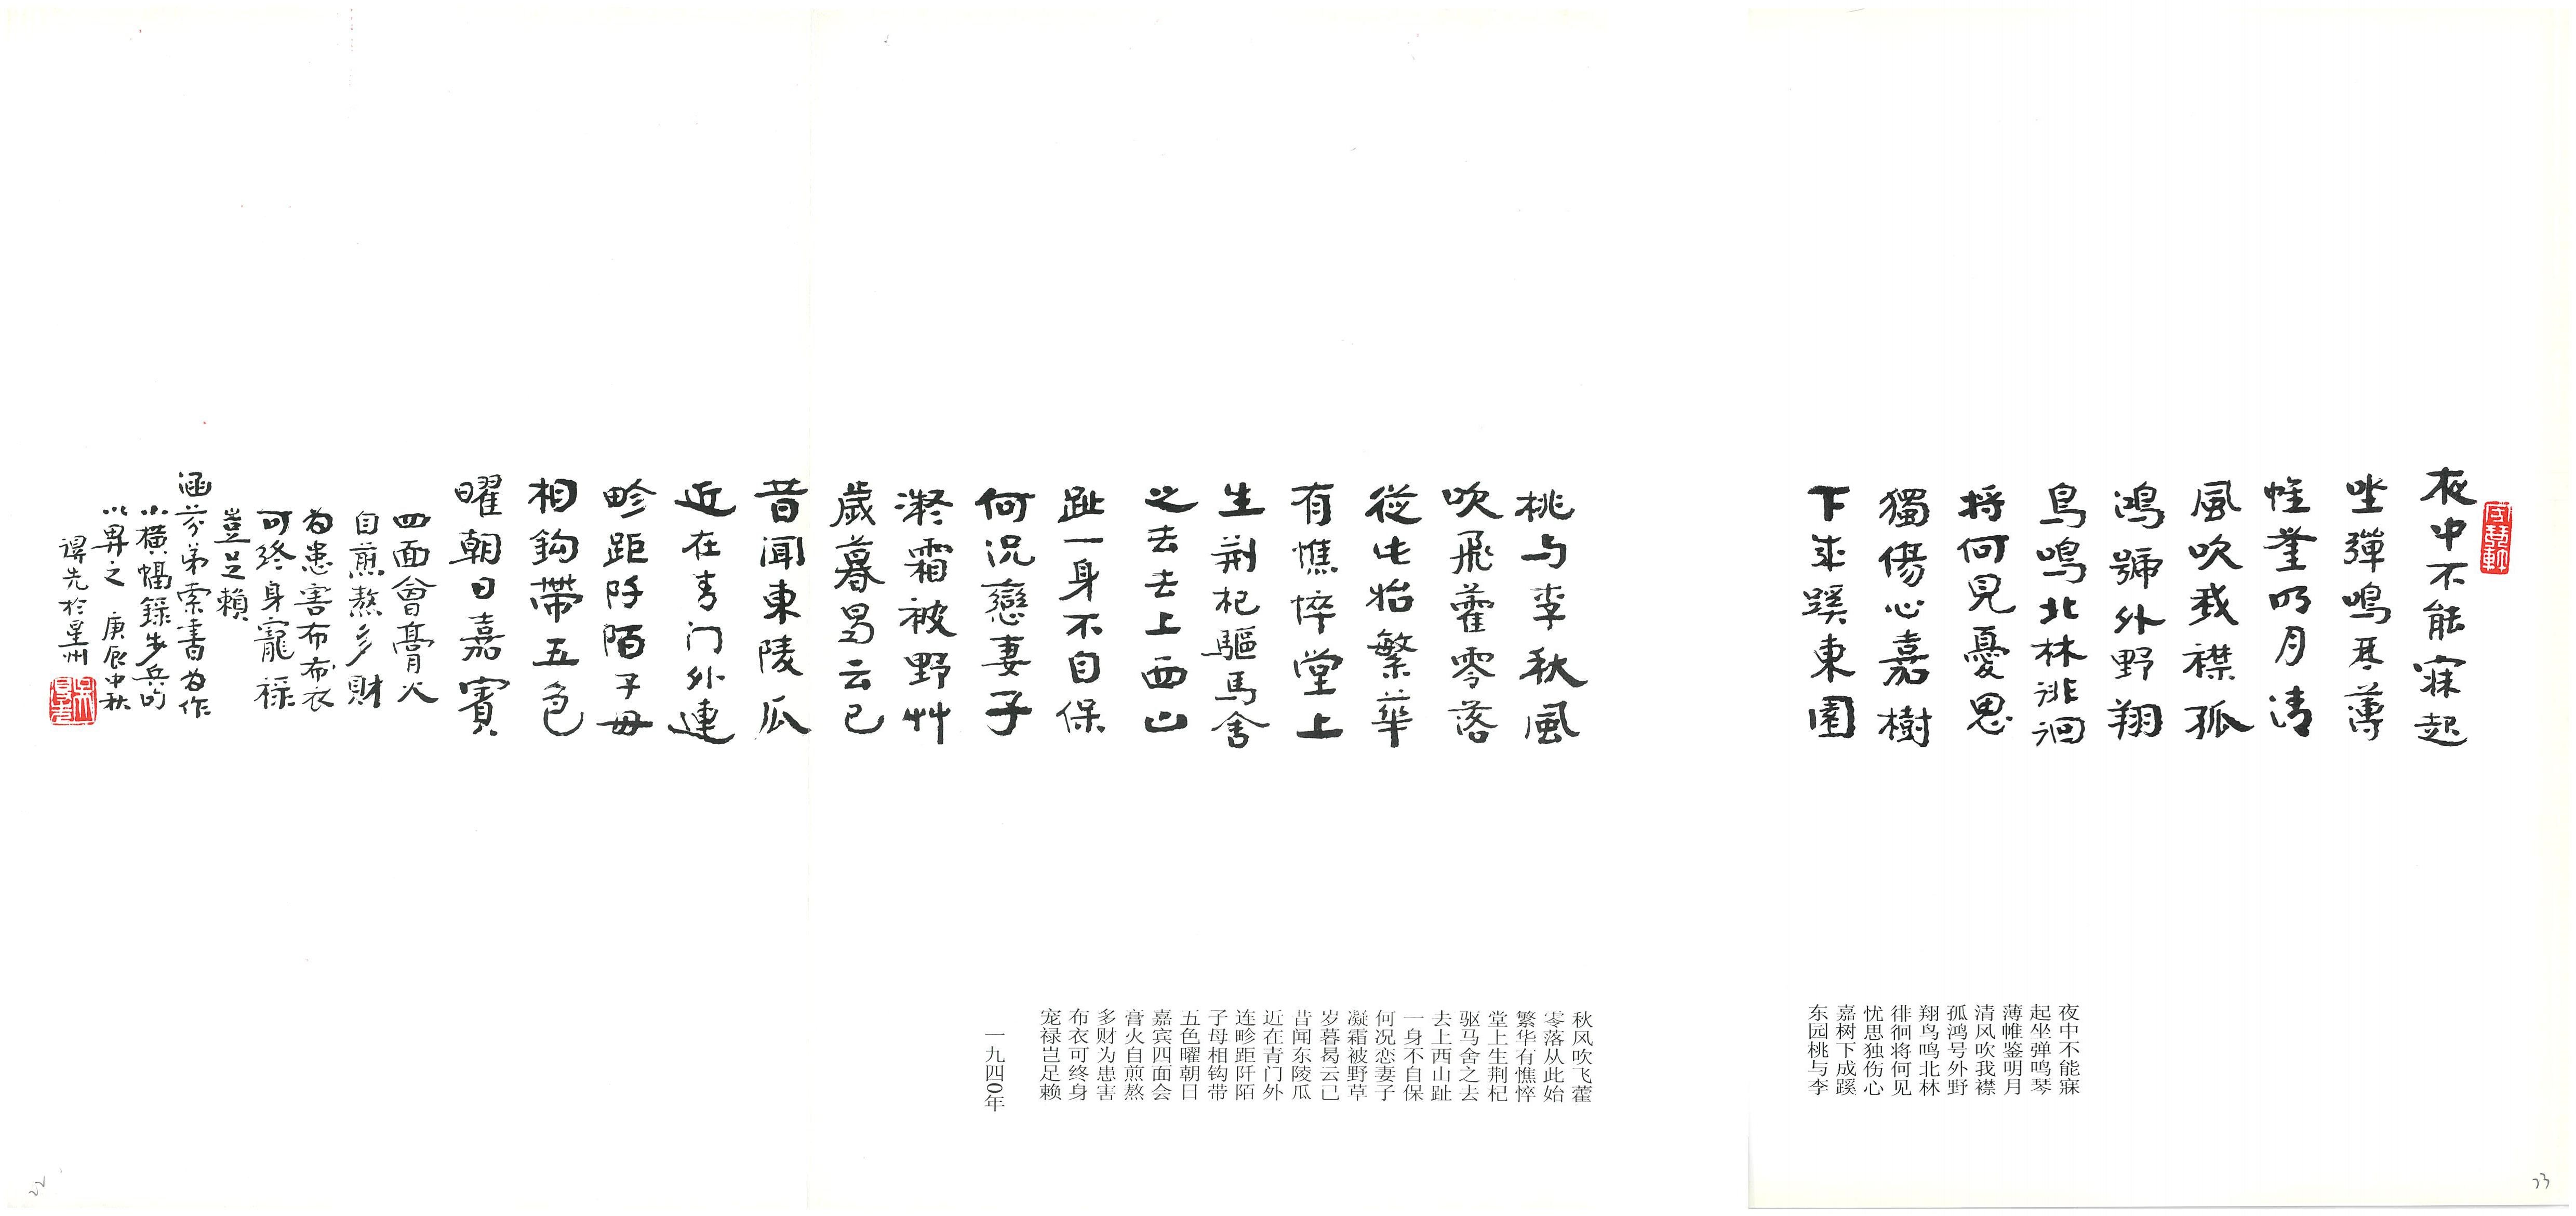 夜中不能寐起
坐彈鳴琴薄
帷鑒明月清
風吹我襟孤
鴻號外野翔
鳥鳴北林徘徊
將何見憂思
獨傷心嘉樹
下成蹊東園
桃与李秋風
吹飛藿零落
從此始繁華
有憔悴堂上
生荆杞驅馬舍
之去去上西山
趾一身不自保
何況戀妻子
凝霜被野艸
歲暮曷云已
昔聞東陵瓜
近在青门外連
畛距阡陌子母
相鈎帶五色
曜朝日嘉賓
四面會膏火
自煎熬多財
为患害布布衣
可終身寵祿
豈足賴
涵芬弟索書为作
小橫幅錄步兵
以畀之 庚辰中秋
得先於星州
夜中不能寐
起坐弹鸣琴
薄帷鉴明月
清风吹我襟
孤鸿号外野
翔鸟鸣北林
徘徊将何见
忧思独伤心
嘉树下成蹊
东园桃与李
秋风吹飞藿
零落从此始
繁华有憔悴
堂上生荆杞
驱马舍之去
去上西山趾
一身不自保
何况恋妻子
凝霜被野草
岁暮曷云已
昔闻东陵瓜
近在青门外
连畛距阡陌
子母相钩带
五色曜朝日
嘉宾四面会
膏火自煎熬
多财为患害
布衣可终身
宠禄岂足赖
一九四0年
22
23